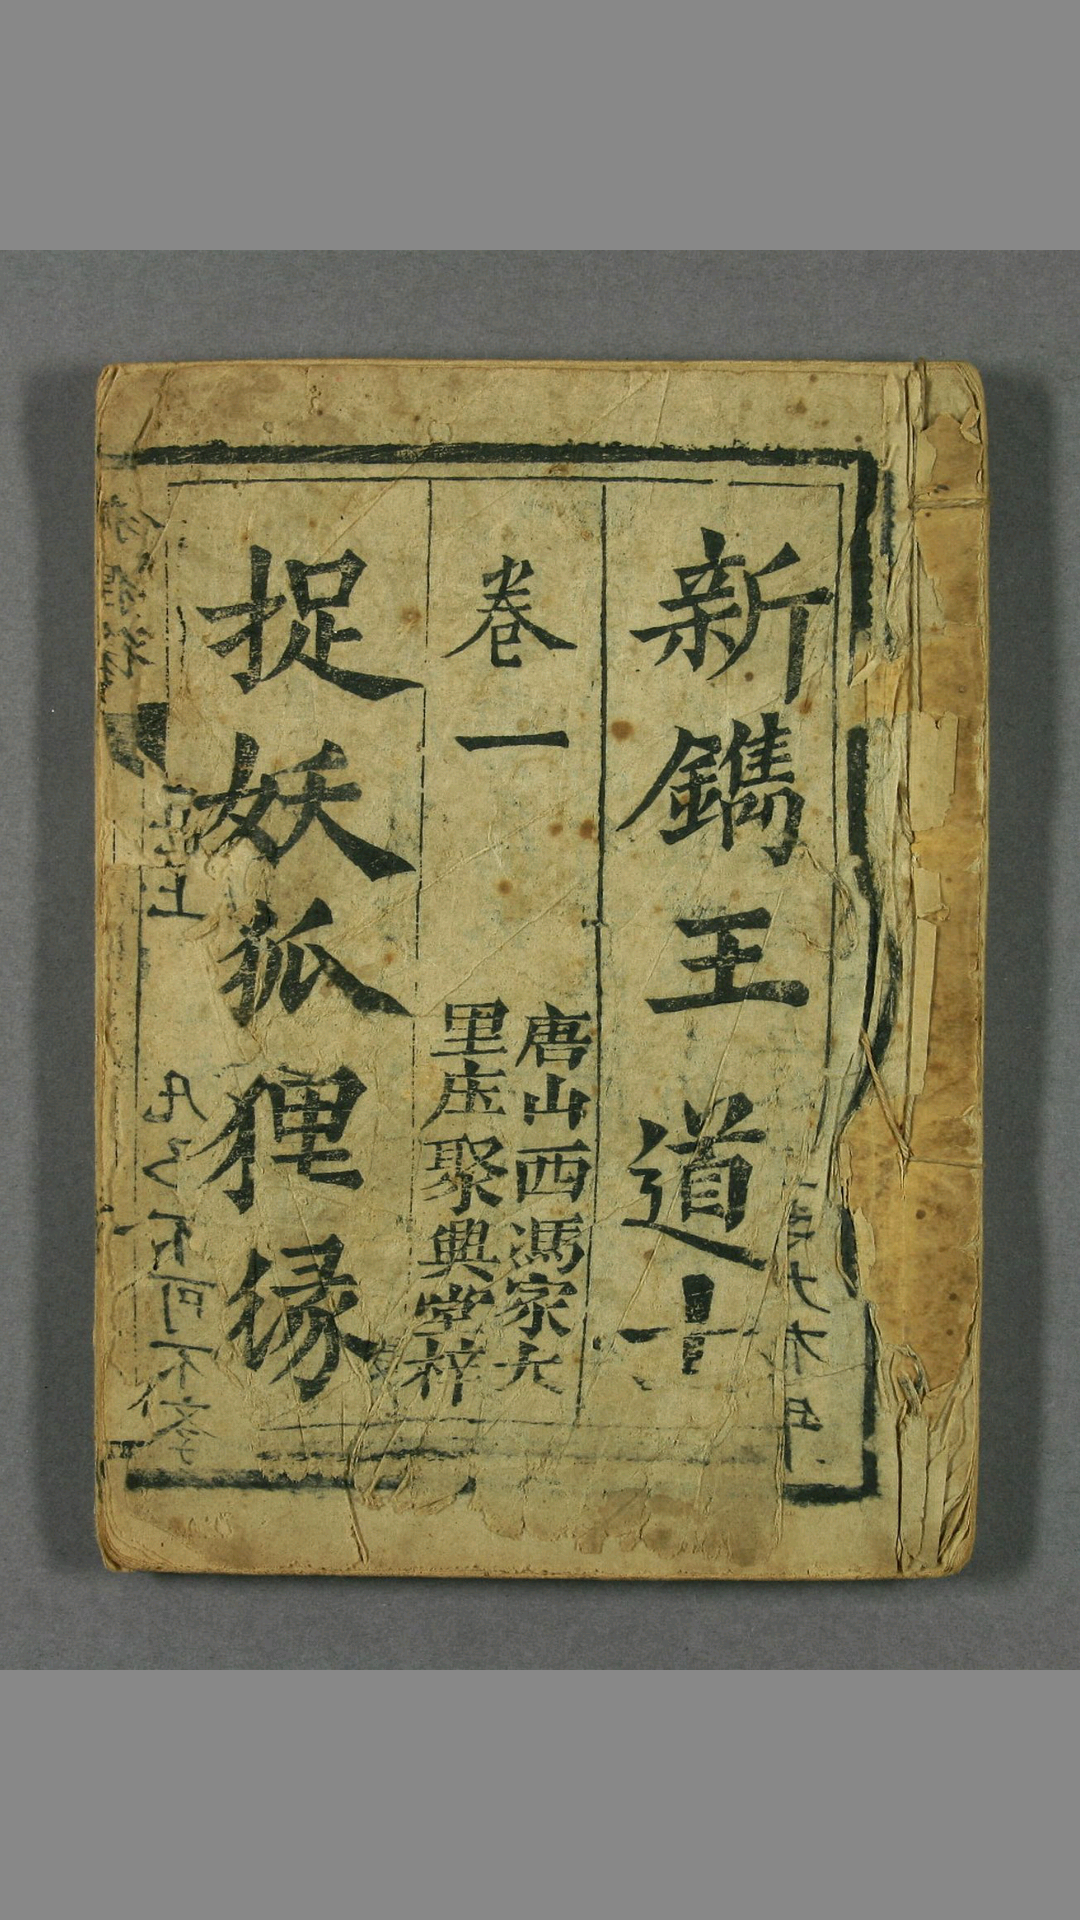 新鐫王道士
卷一
唐山西馮家大
里庄聚典堂梓
捉妖狐狸縁